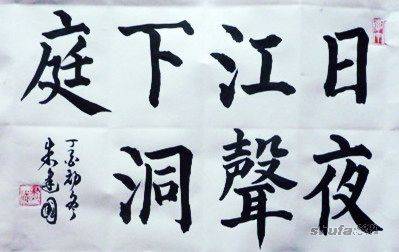 日夜
江聲
下洞
庭
丁亥初冬
朱建國